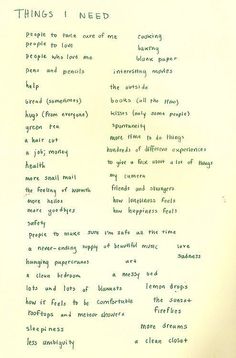 THINGS I NEED
people to take care of me
cooking
people to love
baking
people who love me
blank paper
pens and pencils
interesting movies
help
the outside
bread (sometimes)
books (all the time)
hugs (from everyone)
kisses (only some people)
green tea
spontaneity
a hair cut
more time to do things
a job; money
hundreds of different experiences
health
to give a fuck about a lot of things
more snail mail
my camera
the feeling of warmth
friends and strangers
more hellos
how loneliness feels
more goodbyes
how happiness feels
safety
people to make sure I'm safe all the time
a never-ending supply of beautiful music
love
hanging papercranes
art
sadness
a clean bedroom
a messy bed
lots and lots of blankets
lemon drops
how it feels to be comfortable
the sunset
rooftops and meteor showers
fireflies
sleepiness
more dreams
less ambiguity
a clean closet